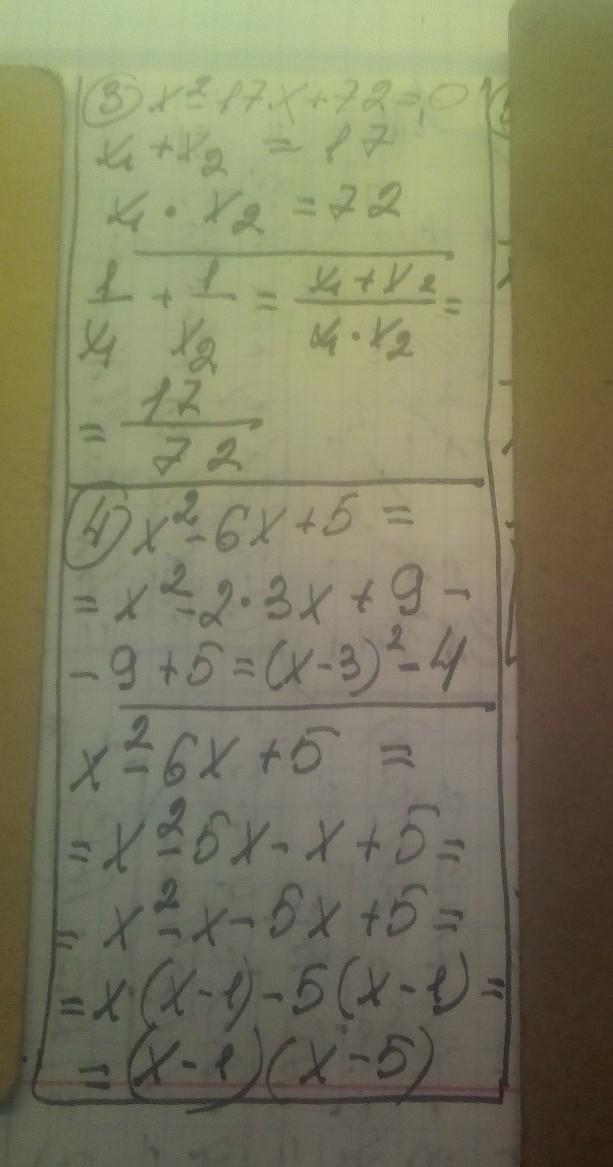 ③ x²-17x+72=0
x₁+x₂ = 17
x₁·x₂ = 72
1/x₁ + 1/x₂ = (x₁+x₂)/(x₁·x₂) =
= 17/72
④ x²-6x+5 =
= x²-2·3x+9-
-9+5=(x-3)²-4
x²-6x+5 =
= x²-5x-x+5=
= x²-x-5x+5=
=x(x-1)-5(x-1)=
=(x-1)(x-5)